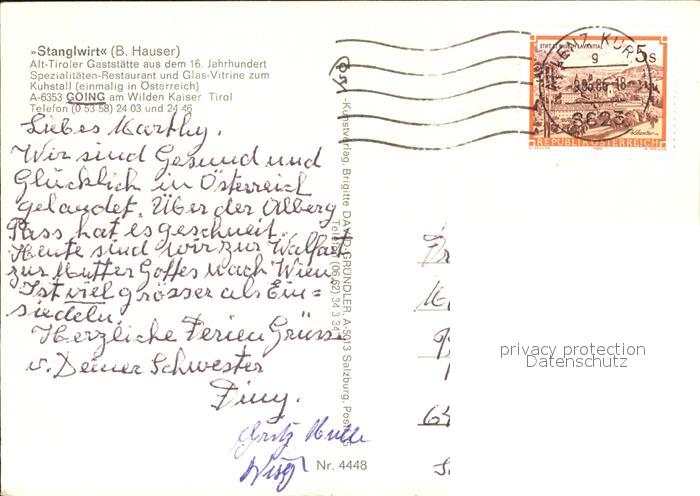 »Stanglwirt« (B. Hauser)
Alt-Tiroler Gaststätte aus dem 16. Jahrhundert
Spezialitäten-Restaurant und Glas-Vitrine zum
Kuhstall (einmalig in Österreich)
A-6353 GOING am Wilden Kaiser Tirol
Telefon (0 53 58) 24 03 und 24 46
Liebes Marthy.
Wir sind Gesund und
Glücklich in Österreich
gelandet. Über der Alberg
Pass hat es geschneit.
Heute sind wir zur Walfart
zur Mutter Gottes nach Wien
Ist viel grösser als Ein=
siedeln.
Herzliche Ferien Grüsse
v. Deiner Schwester
Diny.
Nr. 4448
Kunstverlag, Brigitte DAVID-GRÜNDLER, A-5013 Salzburg,
Telefon (06 62) 34 3 34
STIFT ST. PAUL IM LAVANTTAL
5 S
REPUBLIK ÖSTERREICH
KUR
g
6623
privacy protection
Datenschutz